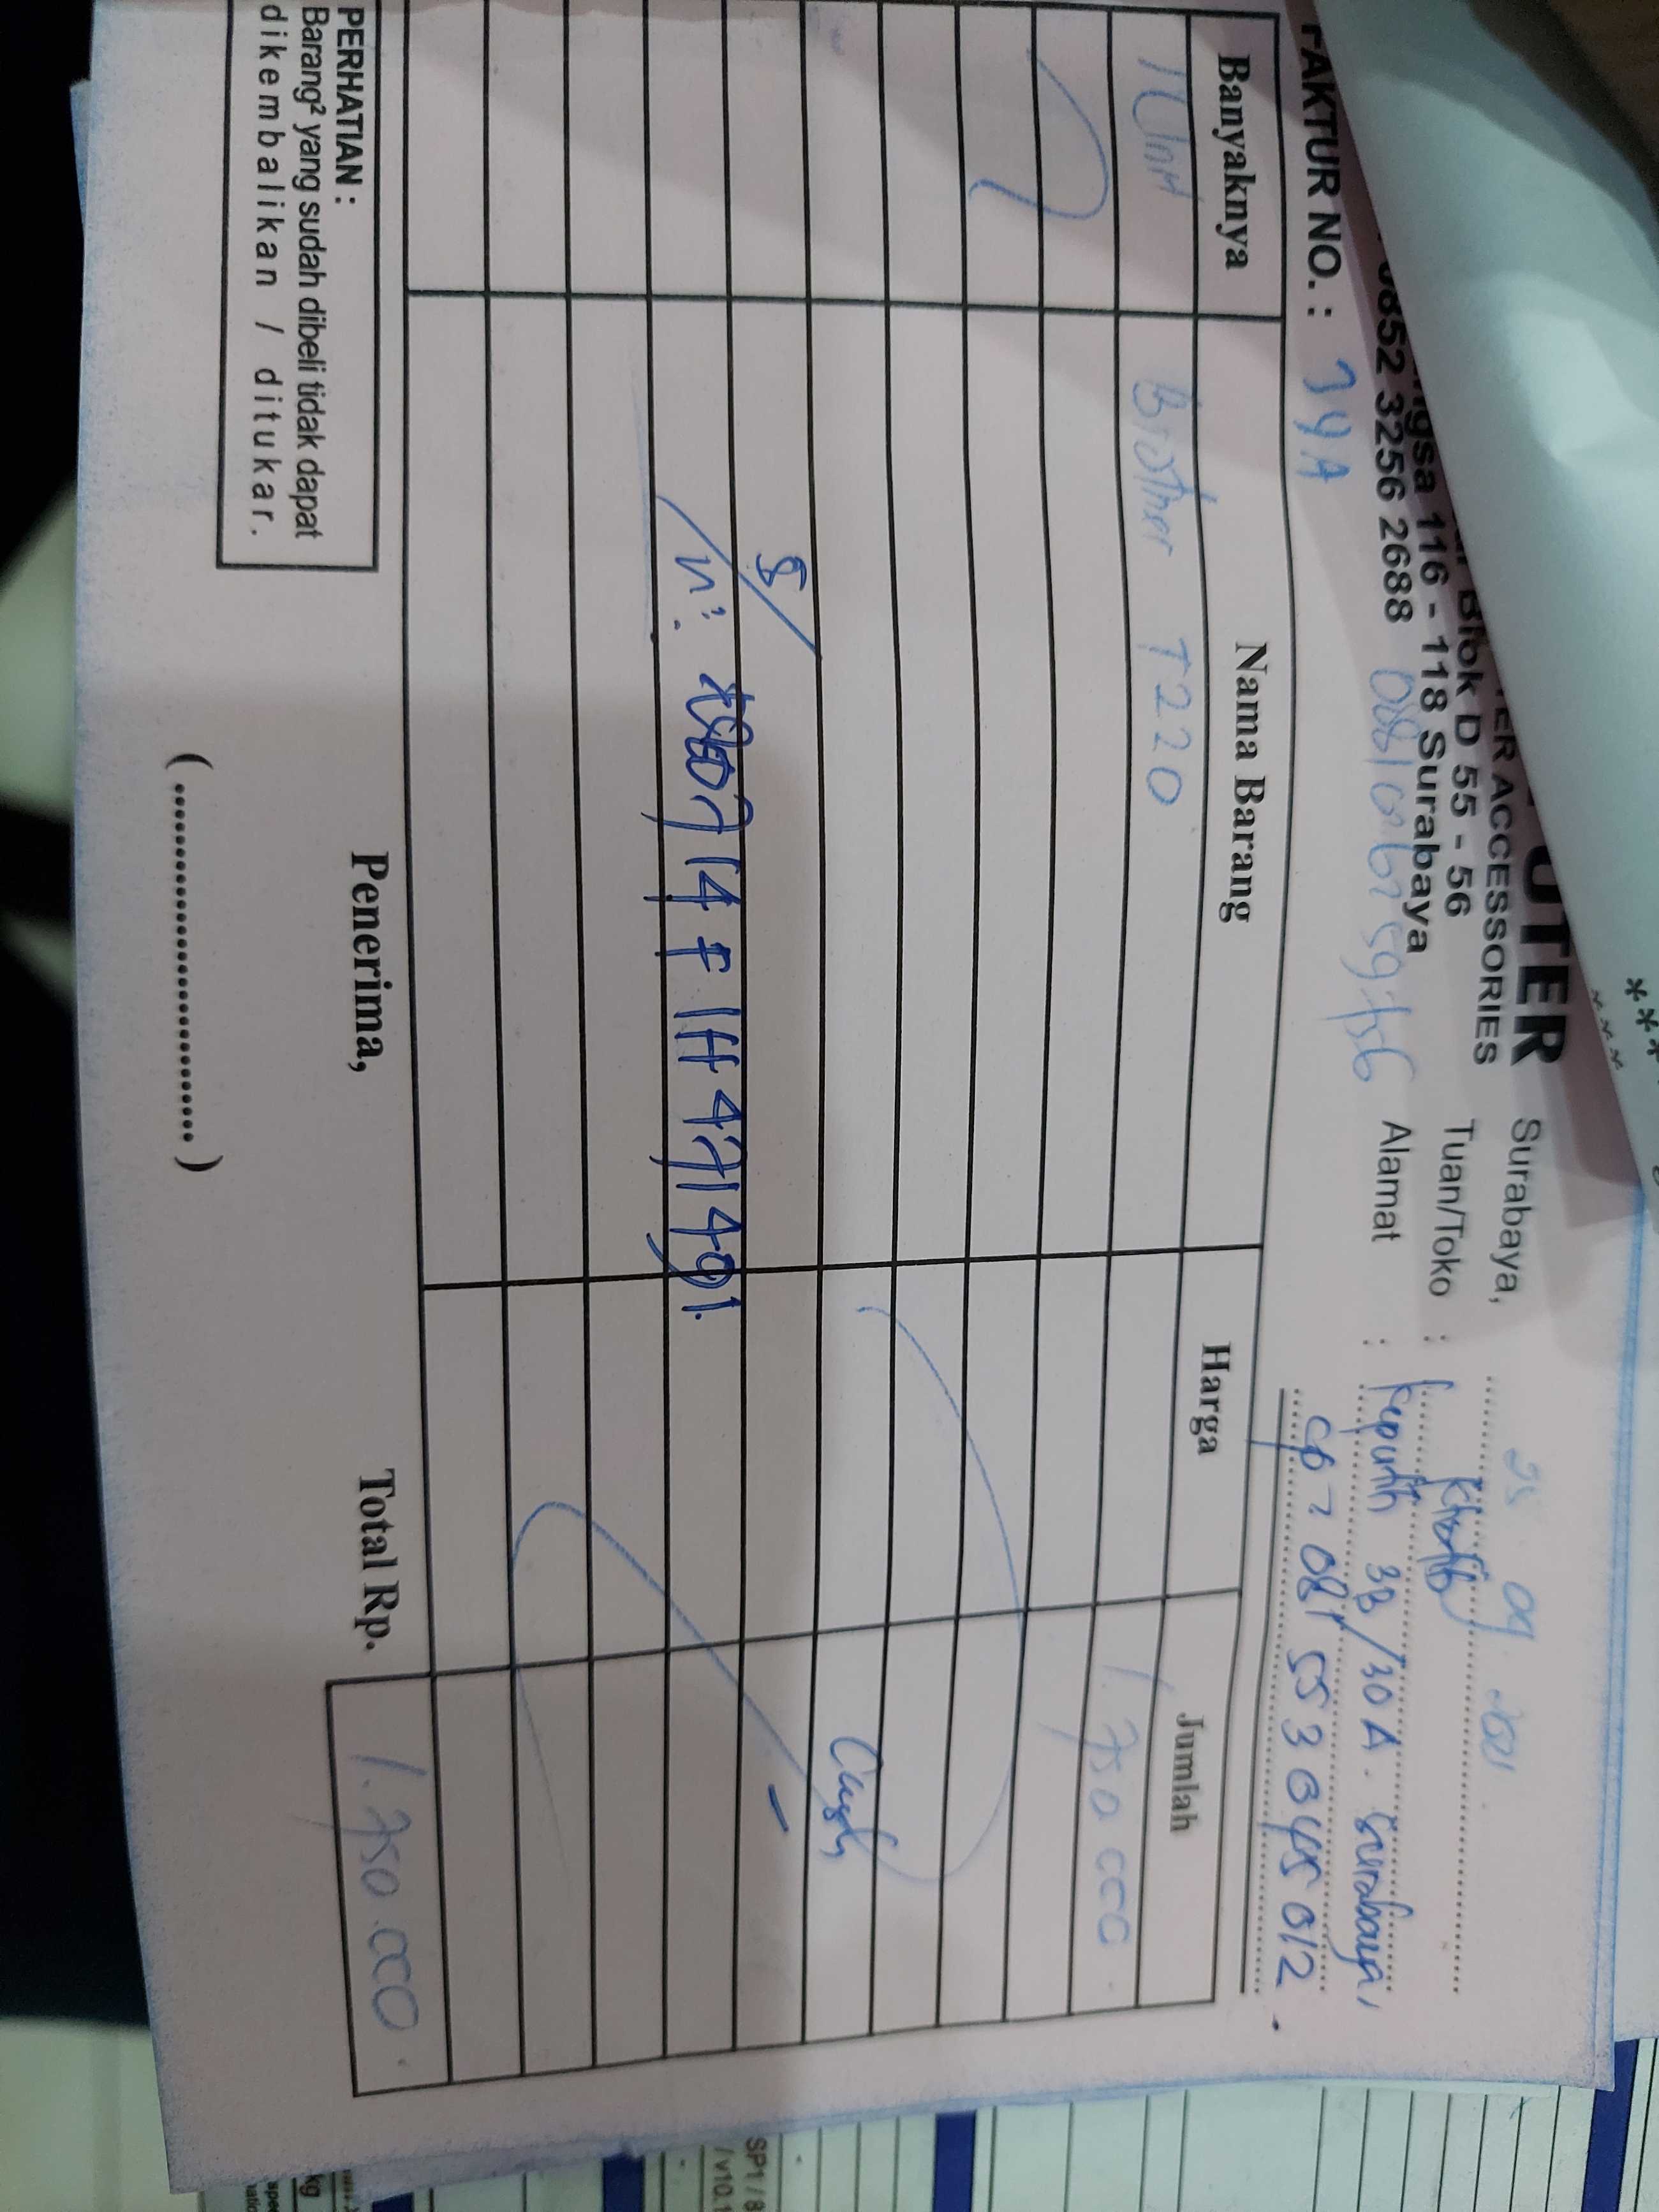 UTER
TER ACCESSORIES
Blok D 55 - 56
ngsa 116 - 118 Surabaya
0852 3256 2688
Surabaya, 25 09 2021
Tuan/Toko : Kholib
Alamat : Keputih 3B/30A. Surabaya,
CP : 081 553 045 012.
FAKTUR NO. : 34A
Banyaknya Nama Barang Harga Jumlah
1 Unit Brother T220 1.750.000
Cash
S/
N:
PERHATIAN :
Barang² yang sudah dibeli tidak dapat
dikembalikan / ditukar.
Penerima,
(........................)
Total Rp. 1.750.000
SP1 / 8
/v10.1
kg